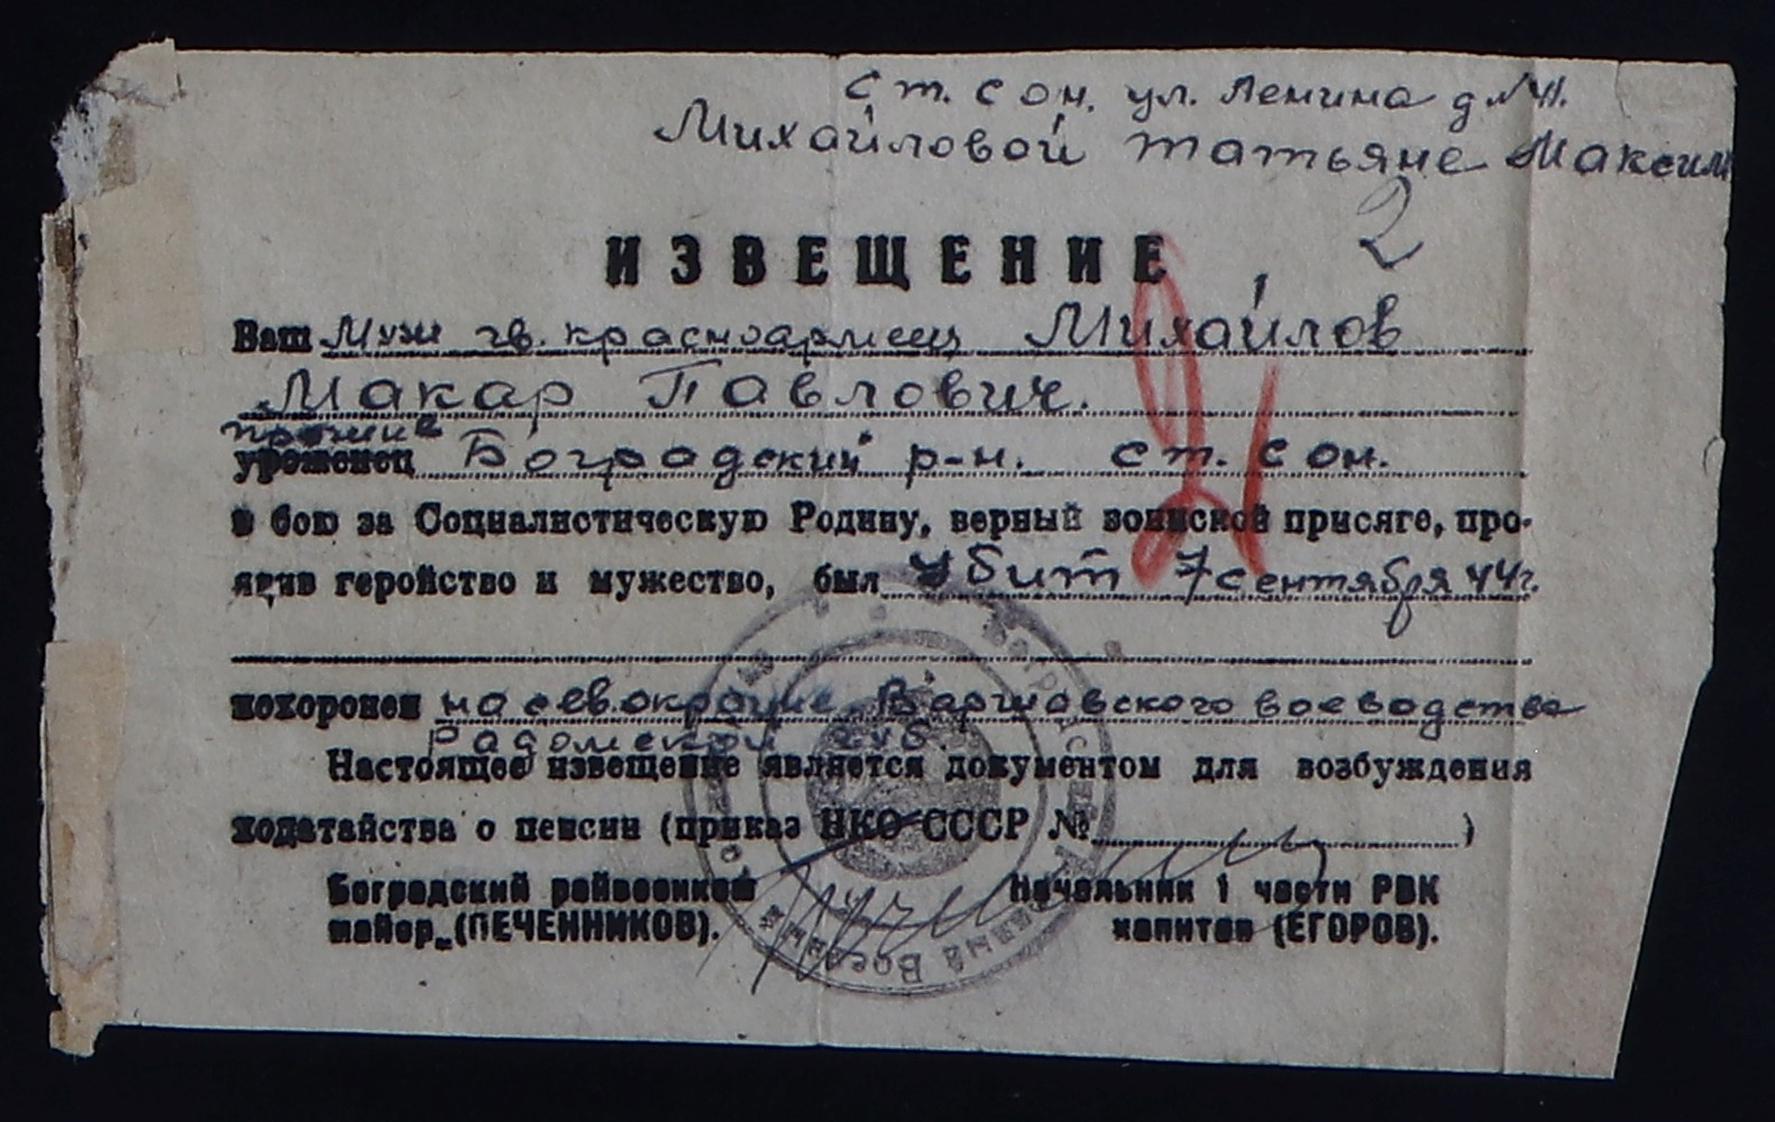 ст. Сон. ул. Ленина д №41.
Михайловой Татьяне Максим
2
ИЗВЕЩЕНИЕ
Ваш муж гв. красноармеец Михайлов
Макар Павлович.
уроженец Боградский р-н. ст. Сон.
в бою за Социалистическую Родину, верный воинской присяге, про-
явив геройство и мужество, был убит 7 сентября 44 г.
похоронен на сев. окраине Варшавского воеводства
Радомской губ.
Настоящее извещение является документом для возбуждения
ходатайства о пенсии (приказ НКО СССР № )
Боградский райвоенком Начальник 1 части РВК
майор (ПЕЧЕННИКОВ). капитан (ЕГОРОВ).